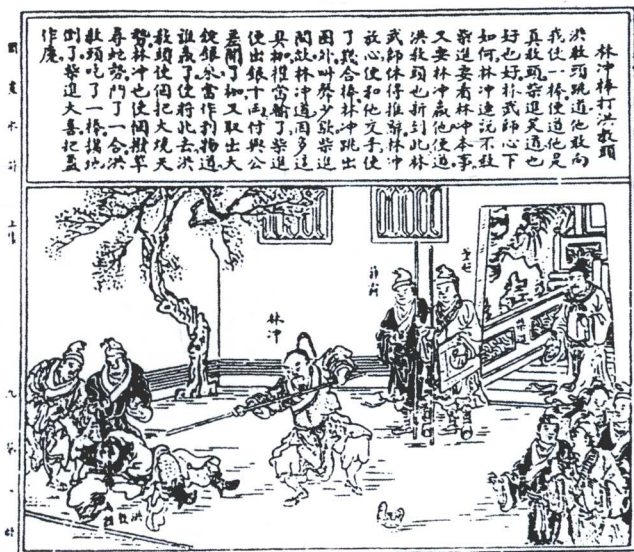 林冲棒打洪教頭
洪教頭跳道他敢向
我使一棒便道他是
真教頭柴進笑道也
好也好林武師心下
如何林冲連說不敢
柴進要看林冲本事
又要林冲贏他便道
洪教頭也新到此林
武師休得推辭林冲
放心便和他交手使
了幾合棒林冲跳出
圈外叫聲少歇柴進
問故林冲道因多這
具枷權當輸了柴進
便出銀十両付與公
差開了枷又取出大
錠銀於當作利物道
誰贏了便將此去洪
教頭使個把火燒天
勢林冲也使個撥草
尋蛇勢鬥了一合洪
教頭吃了一棒撲地
倒了柴進大喜把盞
作慶
董超
林冲
洪教頭
上集